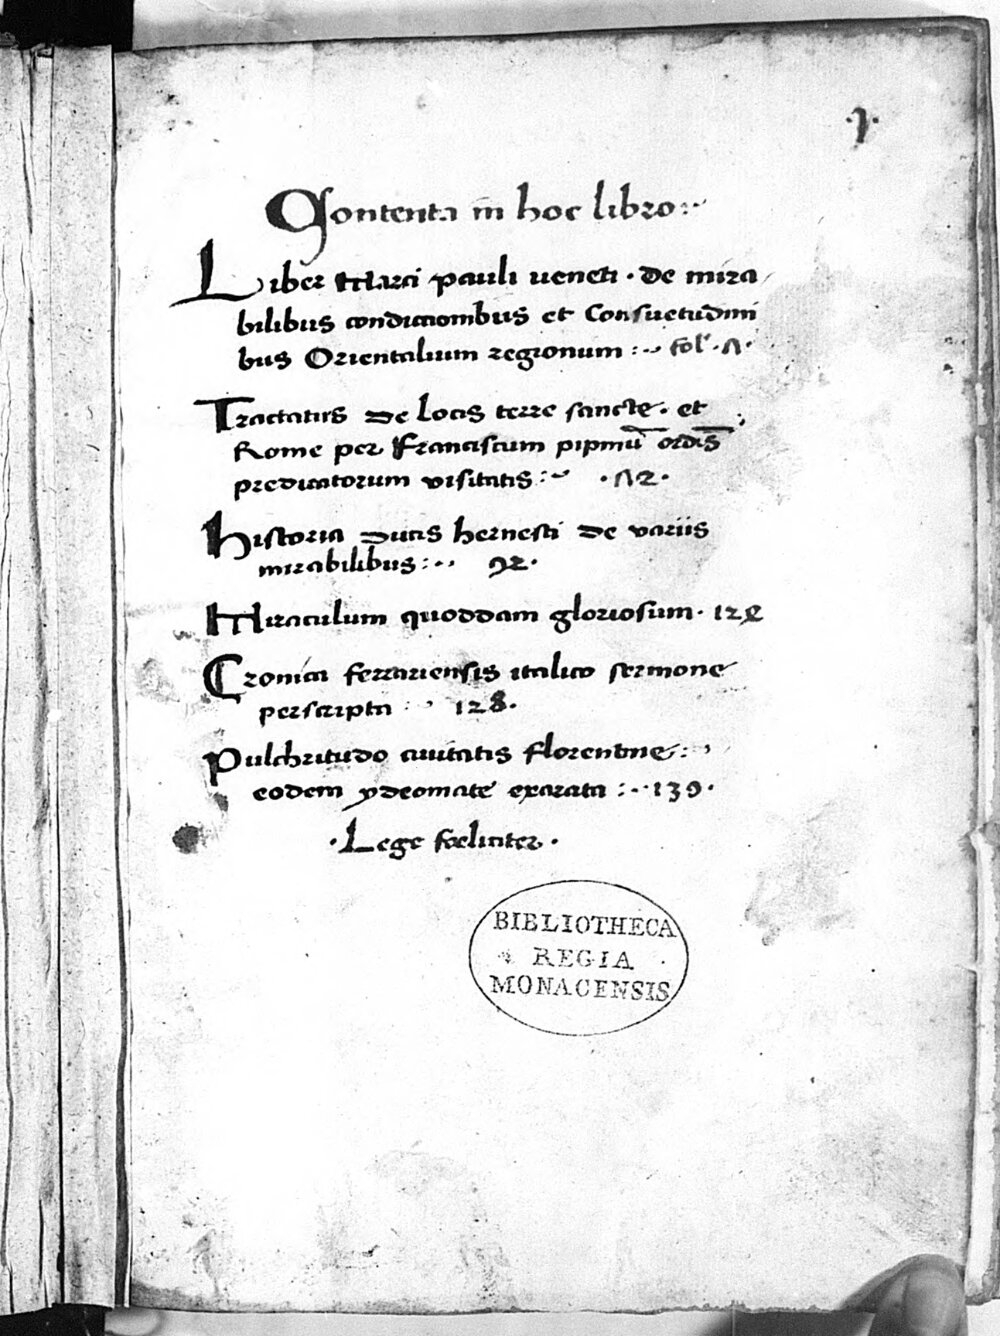 .1.
Contenta in hoc libro
Liber Marci pauli veneti . de mira
bilibus condicionibus et Consuetudini
bus Orientalium regionum : fol . 1 .
Tractatus De locis terre sancte . et
Rome per Franciscum pipinū ordīs
predicatorum visitatis : . 72 .
Historia Ducis hernesti De variis
mirabilibus : 92 .
Miraculum quoddam gloriosum .
Cronica ferrariensis italico sermone
perscripta : 128 .
Pulchritudo civitatis florentine :
eodem ydeomate exarata : 139 .
. Lege foeliciter .
BIBLIOTHECA
REGIA
MONACENSIS